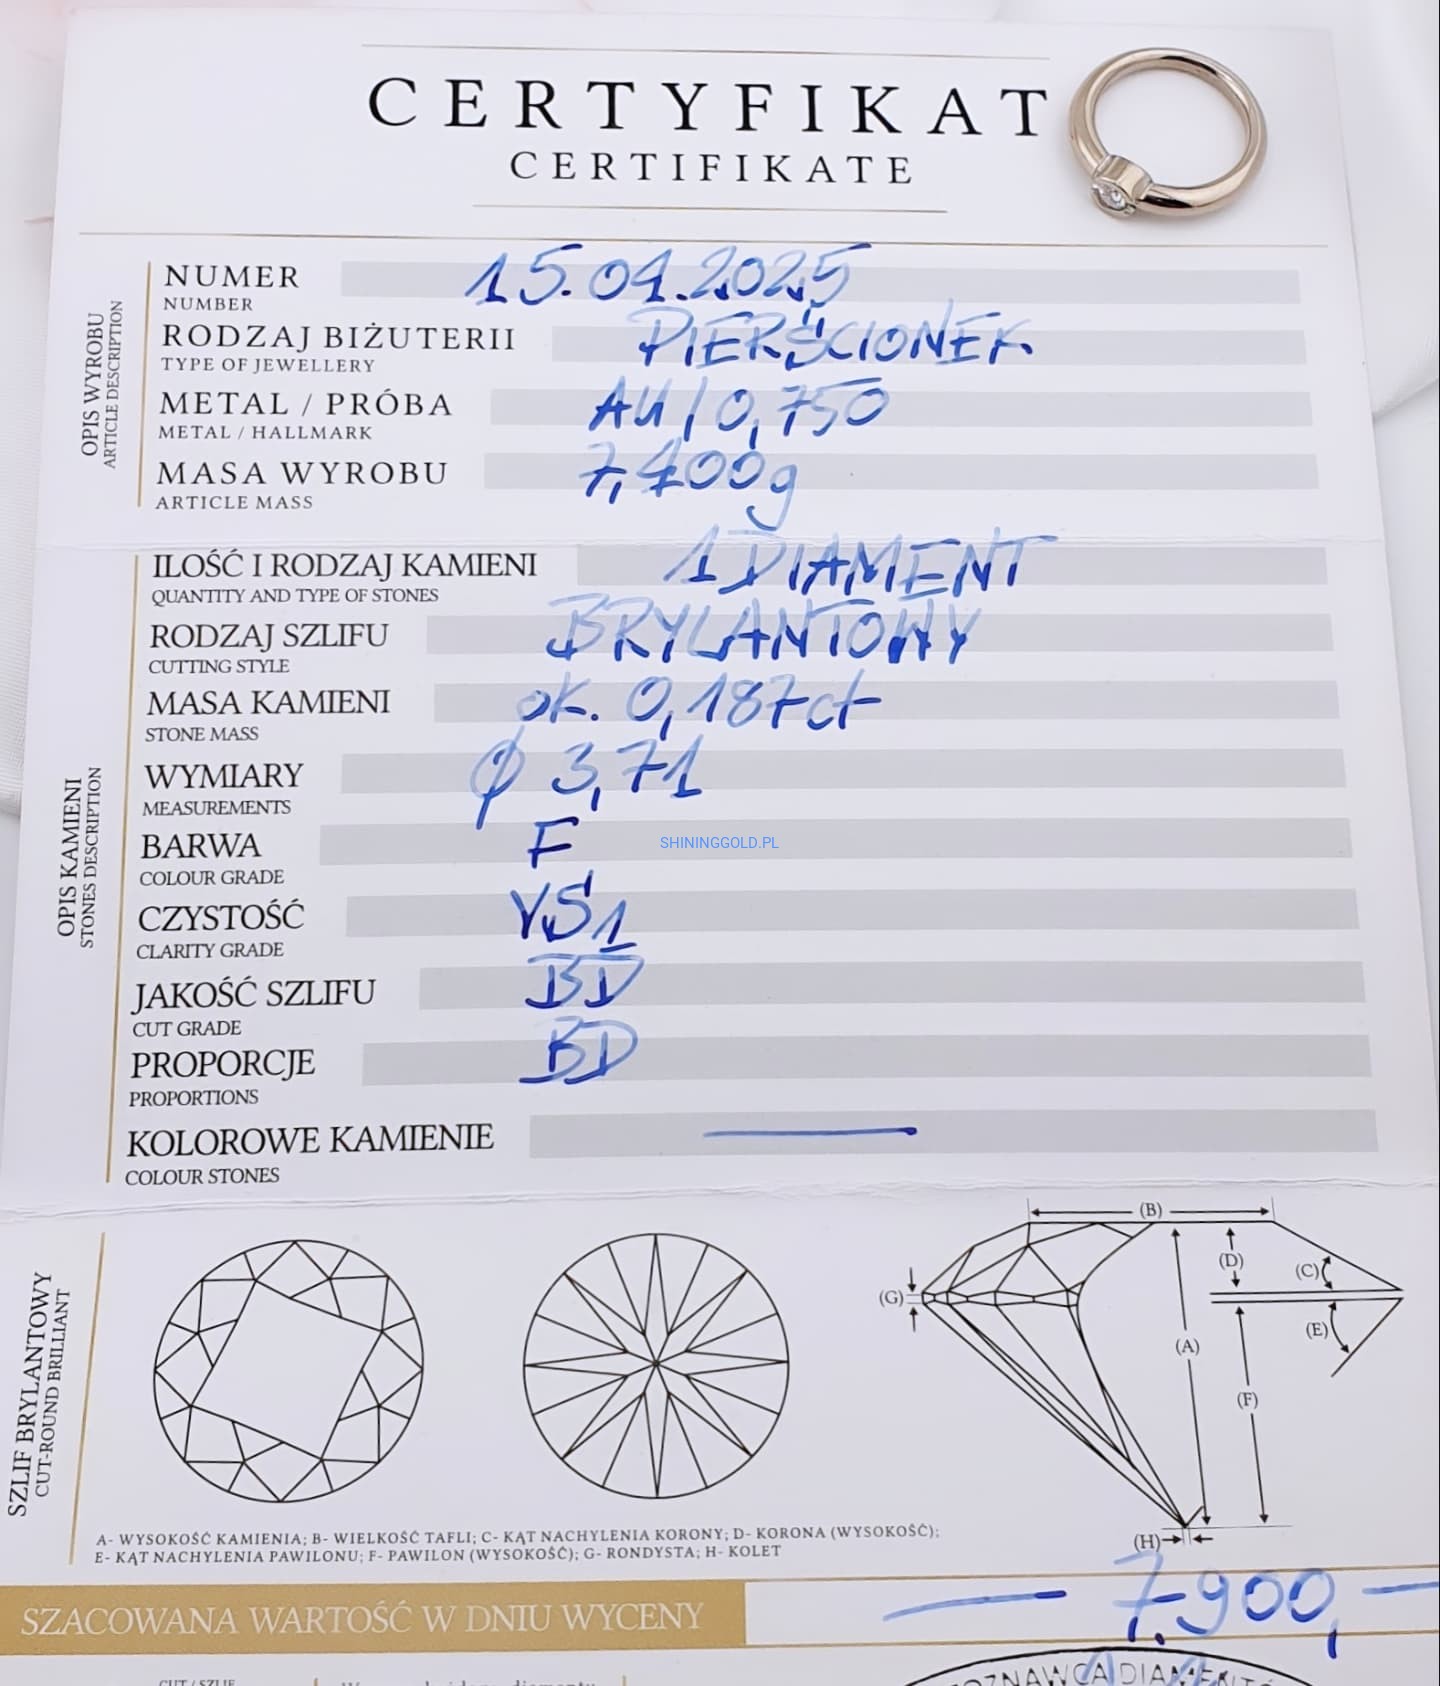 CERTYFIKAT
CERTIFIKATE
OPIS WYROBU
ARTICLE DESCRIPTION
NUMER 15.04.2025
NUMBER
RODZAJ BIŻUTERII PIERŚCIONEK
TYPE OF JEWELLERY
METAL / PRÓBA AU/0,750
METAL / HALLMARK
MASA WYROBU 7,400g
ARTICLE MASS
OPIS KAMIENI
STONES DESCRIPTION
ILOŚĆ I RODZAJ KAMIENI 1 DIAMENT
QUANTITY AND TYPE OF STONES
RODZAJ SZLIFU BRYLANTOWY
CUTTING STYLE
MASA KAMIENI ok. 0,187ct
STONE MASS
WYMIARY ϕ 3,71
MEASUREMENTS
BARWA F
COLOUR GRADE
SHININGGOLD.PL
CZYSTOŚĆ VS1
CLARITY GRADE
JAKOŚĆ SZLIFU BD
CUT GRADE
PROPORCJE BD
PROPORTIONS
KOLOROWE KAMIENIE —
COLOUR STONES
SZLIF BRYLANTOWY
CUT-ROUND BRILLIANT
(B)
(D)
(C)
(G)
(E)
(A)
(F)
(H)
A- WYSOKOŚĆ KAMIENIA; B- WIELKOŚĆ TAFLI; C- KĄT NACHYLENIA KORONY; D- KORONA (WYSOKOŚĆ);
E- KĄT NACHYLENIA PAWILONU; F- PAWILON (WYSOKOŚĆ); G- RONDYSTA; H- KOLET
SZACOWANA WARTOŚĆ W DNIU WYCENY — 7.900,—
CUT / SZLIF